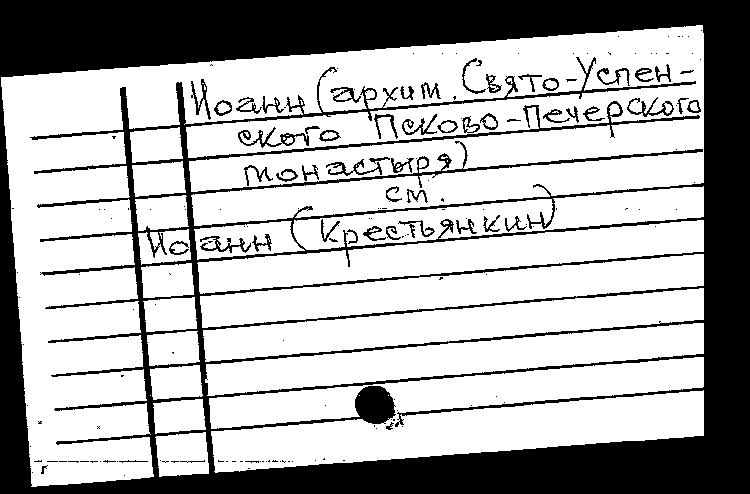 Иоанн (архим. Свято-Успен-
ского Псково-Печерского
монастыря)
см.
Иоанн (Крестьянкин)